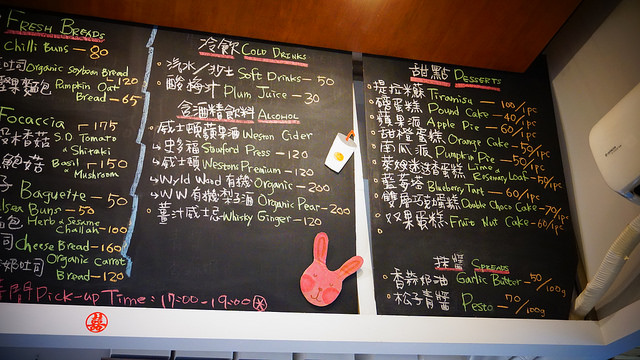 FRESH BREADS
Chilli Buns — 80
吐司 Organic Soybean Bread — 120
麵包 Pumpkin Oat Bread — 65
Focaccia — 175
S.D Tomato & Shiitaki
Basil & Mushroom — 150
Baguette — 50
Buns — 50
包 Herb & Sesame Challah — 100
司 Cheese Bread — 160
奶吐司 Organic Carrot Bread — 120
Pick-up Time: 17:00 - 19:00
冷飲 COLD DRINKS
汽水/沙士 Soft Drinks — 50
酸梅汁 Plum Juice — 30
含酒精飲料 ALCOHOL
威士頓蘋果酒 Weston Cider
Stowford Press — 120
威士頓 Westons Premium — 120
Wyld Wood 有機 Organic — 200
WW 有機梨子酒 Organic Pear — 200
薑汁威士忌 Whisky Ginger — 120
甜點 DESSERTS
提拉米蘇 Tiramisu — 100/pc
磅蛋糕 Pound Cake — 40/pc
蘋果派 Apple Pie — 60/pc
甜橙蛋糕 Orange Cake — 50/pc
南瓜派 Pumpkin Pie — 50/pc
Lime & Rosemary Loaf — 50/pc
藍莓塔 Blueberry Tart — 60/pc
雙層巧克蛋糕 Double Choco Cake — 70/pc
蛋糕 Fruit Nut Cake — 60/pc
抹醬 SPREADS
香蒜奶油 Garlic Butter — 50/100g
松子青醬 Pesto — 70/100g
囍